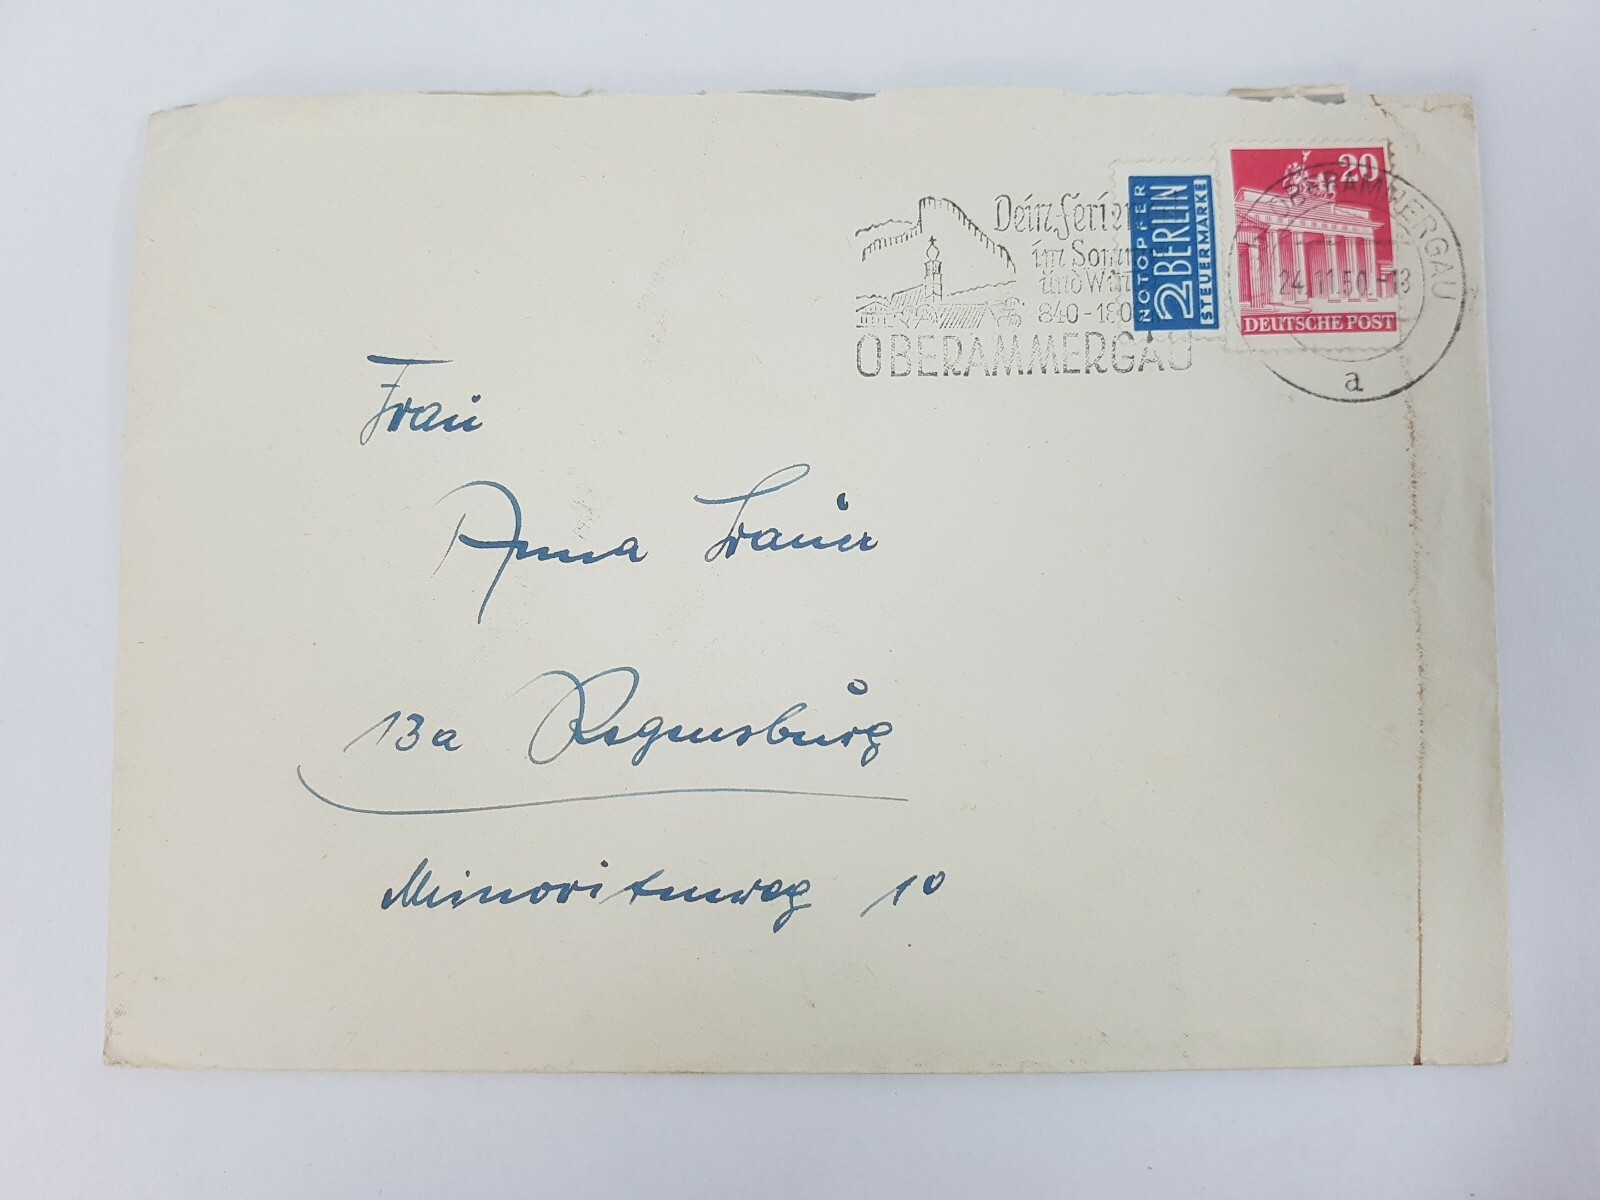 Dein Ferien
im Som
und Win
840-180
OBERAMMERGAU
NOTOPFER
2 BERLIN
STEUERMARKE
20
DEUTSCHE POST
OBERAMMERGAU
24.11.50.-13
a
Frau
Anna
13a Regensburg
Minoritenweg 10